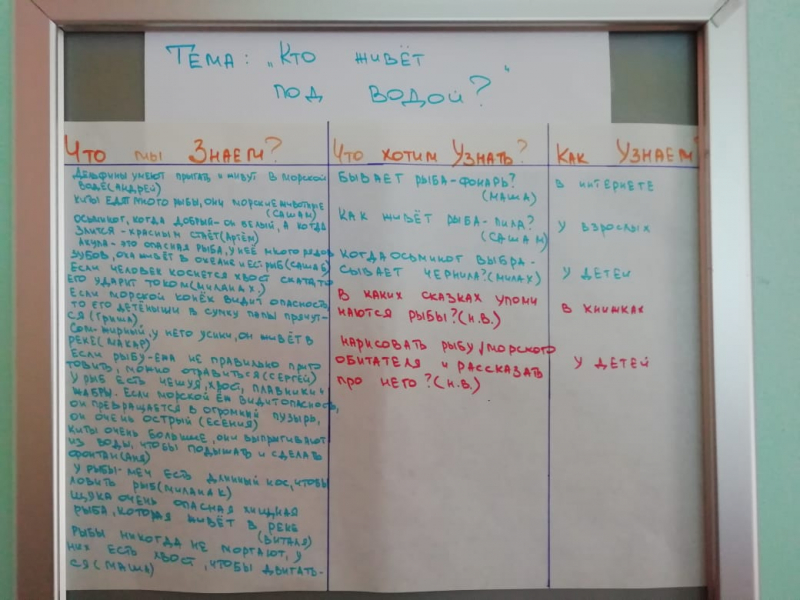 Тема: „Кто живёт
под водой?"
Что мы знаем?
Дельфины умеют прыгать и живут в морской
воде(Андрей)
Киты едят много рыбы, они морские животные
(Саша М)
Осьминог, когда добрый-он белый, а когда
злится-красным стаёт(Артём)
Акула-это опасная рыба, у неё много рядов
зубов, она живёт в океане и ест рыб(Саша Б)
Если человек коснется хвост ската, то
его ударит током(Милана Х.)
Если морской конёк видит опасность,
то его детёныши в сумку папы прячут-
ся(Гриша)
Сом-жирный, у него усики, он живёт в
реке(Макар)
Если рыбу-ежа не правильно приго
товить, можно отравиться(Сергей)
У рыб есть чешуя, хвост, плавники и
жабры. Если морской ёж видит опасность,
он превращается в огромный пузырь,
он очень острый(Есения)
Киты очень большие, они выпрыгивают
из воды, чтобы подышать и сделать
фонтан(Аня)
У рыбы-меч есть длинный нос, чтобы
ловить рыб(Милана К)
Щука очень опасная хищная
рыба, которая живёт в реке
(Виталя)
Рыбы никогда не моргают, у
них есть хвост, чтобы двигать-
ся(Маша)
Что хотим узнать?
Бывает рыба-фонарь?
(Маша)
Как живёт рыба-пила?
(Саша М)
Когда осьминог выбра-
сывает чернила?(Мила Х)
В каких сказках упоми
наются рыбы?(Н.В.)
Нарисовать рыбу/морского
обитателя и рассказать
про него?(Н.В.)
Как узнаем?
В интернете
У взрослых
У детей
В книжках
У детей